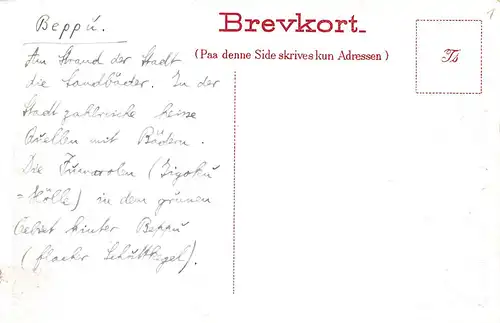 Beppu.
1
Brevkort.
(Paa denne Side skrives kun Adressen)
Ts
Am Strand der Stadt
die Sandbäder. In der
Stadt zahlreiche heisse
Quellen mit Bädern.
Die Fumarolen (Jigoku
=Hölle) in dem grünen
Gebiet hinter Beppu
(flacher Schuttkegel).